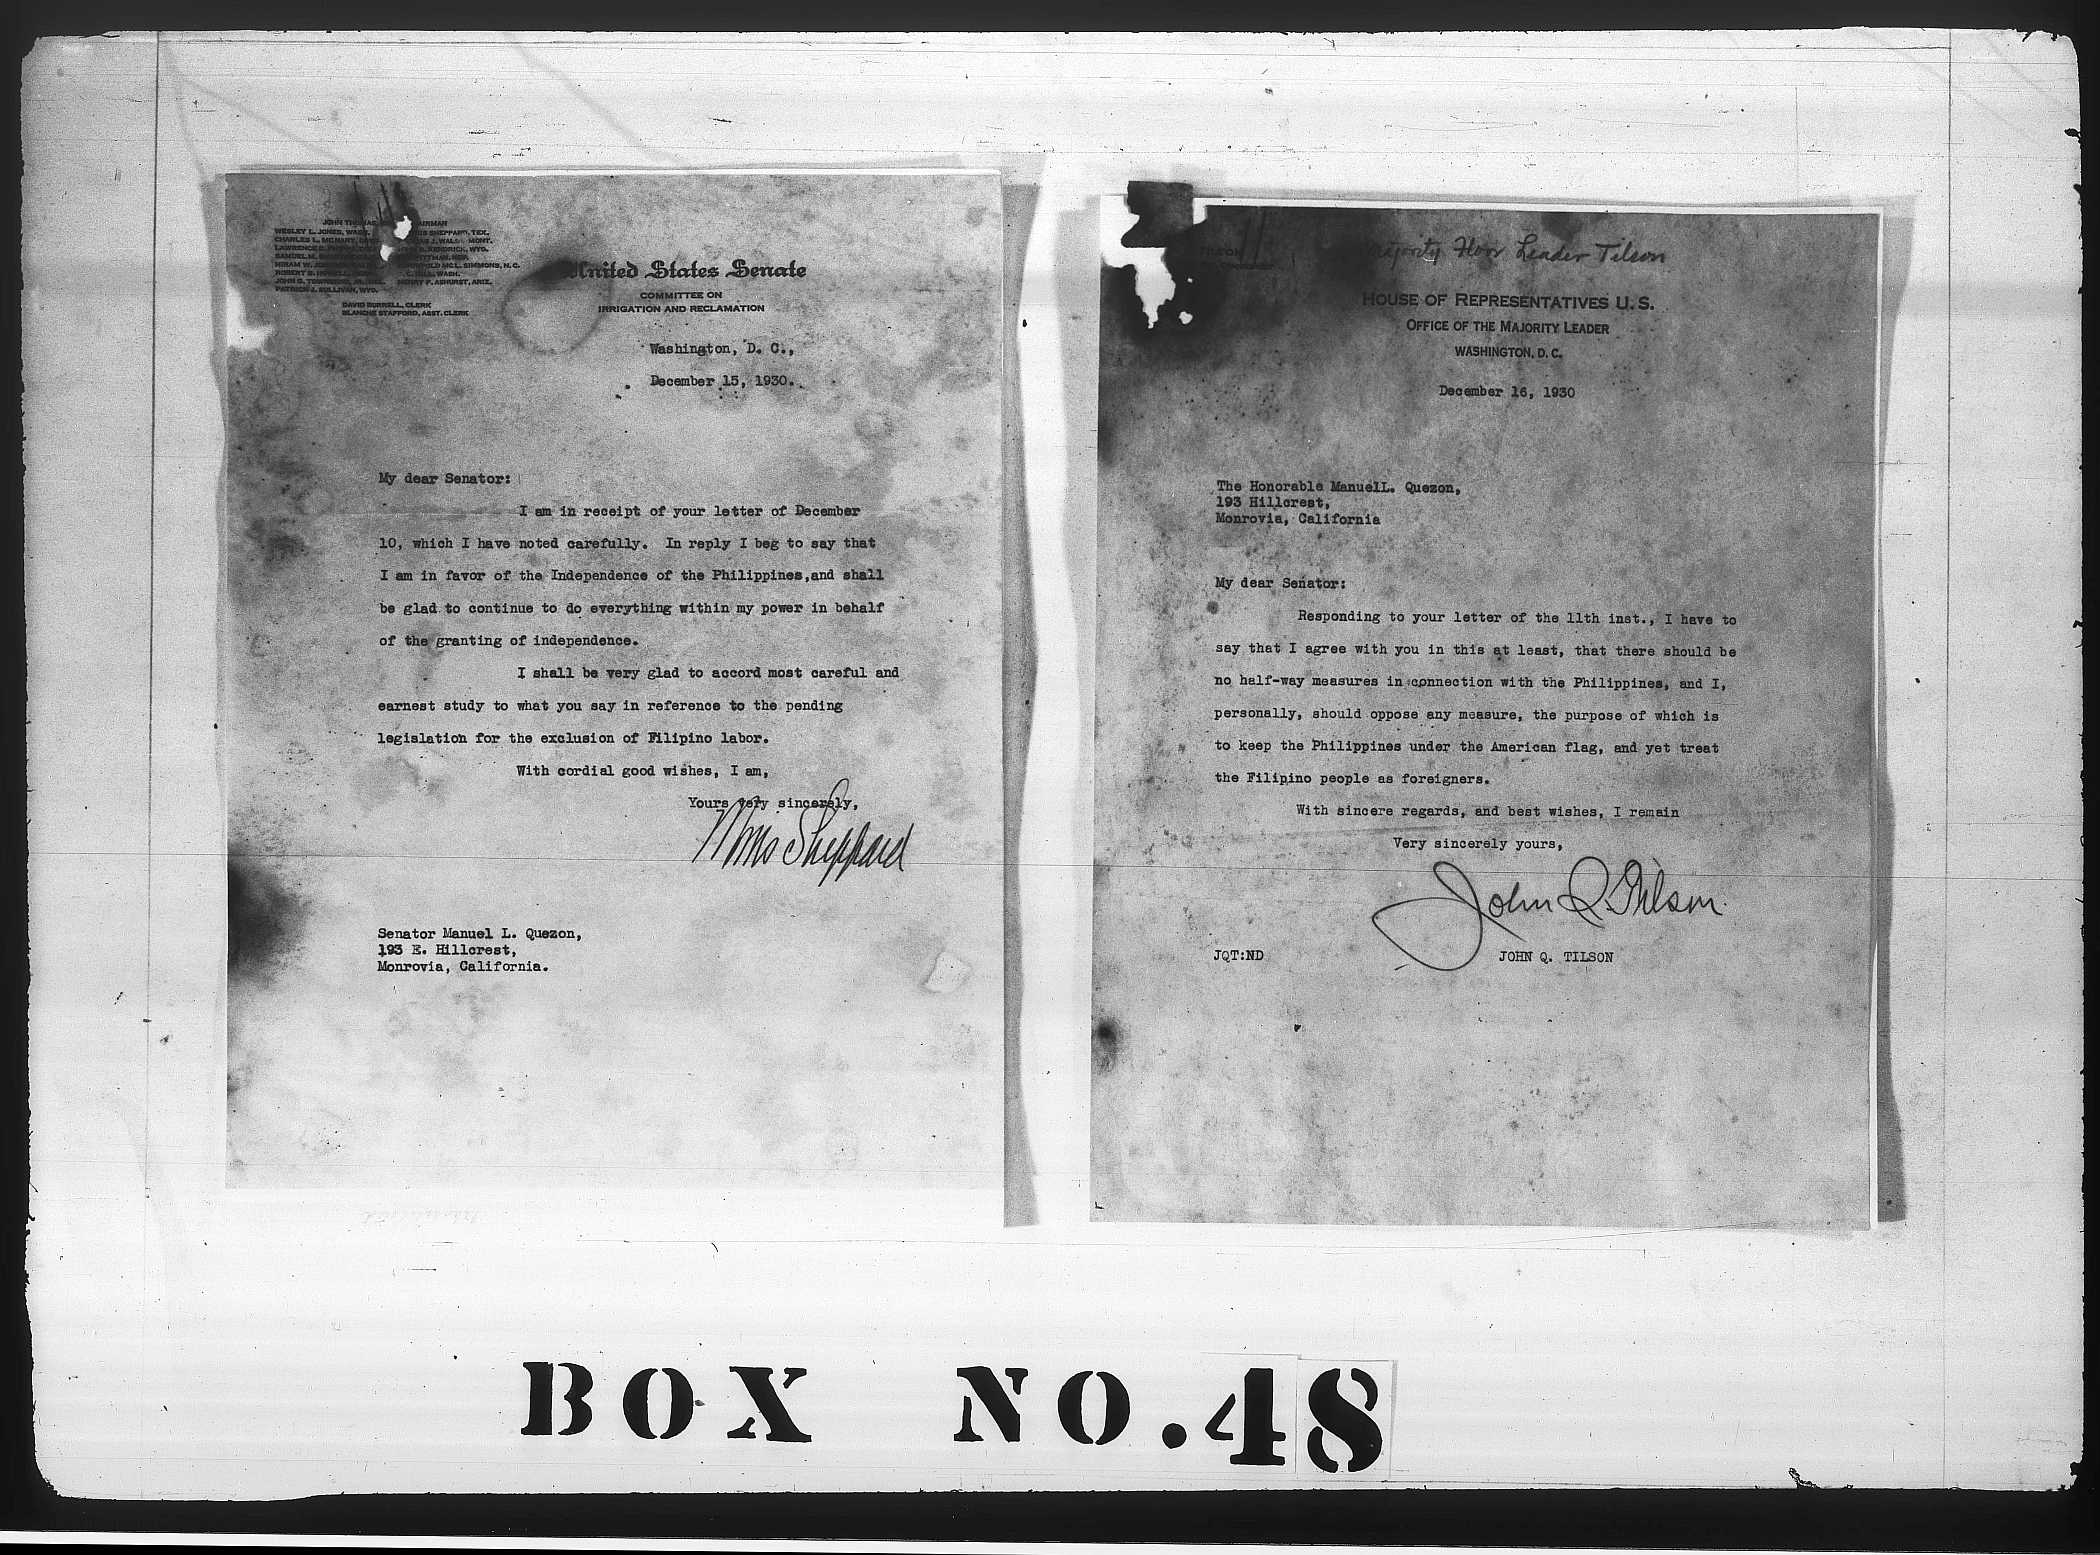 JOHN THOMAS CHAIRMAN
WESLEY L. JONES, WASH. MORRIS SHEPPARD, TEX.
CHARLES L. MCNARY, J. WALSH, MONT.
KENDRICK, WYO.
SAMUEL M. PITTMAN, NEV.
HIRAM W. MCL. SIMMONS, N. C.
ROBERT B. C. DILL, WASH.
JOHN G. HENRY F. ASHURST, ARIZ.
PATRICK J. SULLIVAN, WYO.
DAVID BURRELL, CLERK
BLANCHE STAFFORD, ASST. CLERK
United States Senate
COMMITTEE ON
IRRIGATION AND RECLAMATION
Washington, D. C.,
December 15, 1930.
My dear Senator:
I am in receipt of your letter of December
10, which I have noted carefully. In reply I beg to say that
I am in favor of the Independence of the Philippines,and shall
be glad to continue to do everything within my power in behalf
of the granting of independence.
I shall be very glad to accord most careful and
earnest study to what you say in reference to the pending
legislation for the exclusion of Filipino labor.
With cordial good wishes, I am,
Yours very sincerely,
Morris Sheppard
Senator Manuel L. Quezon,
193 E. Hillcrest,
Monrovia, California.
Majority Floor Leader Tilson
HOUSE OF REPRESENTATIVES U. S.
OFFICE OF THE MAJORITY LEADER
WASHINGTON, D. C.
December 16, 1930
The Honorable ManuelL. Quezon,
193 Hillcrest,
Monrovia, California
My dear Senator:
Responding to your letter of the 11th inst., I have to
say that I agree with you in this at least, that there should be
no half-way measures in connection with the Philippines, and I,
personally, should oppose any measure, the purpose of which is
to keep the Philippines under the American flag, and yet treat
the Filipino people as foreigners.
With sincere regards, and best wishes, I remain
Very sincerely yours,
John Q. Tilson.
JQT:ND JOHN Q. TILSON
BOX NO. 48